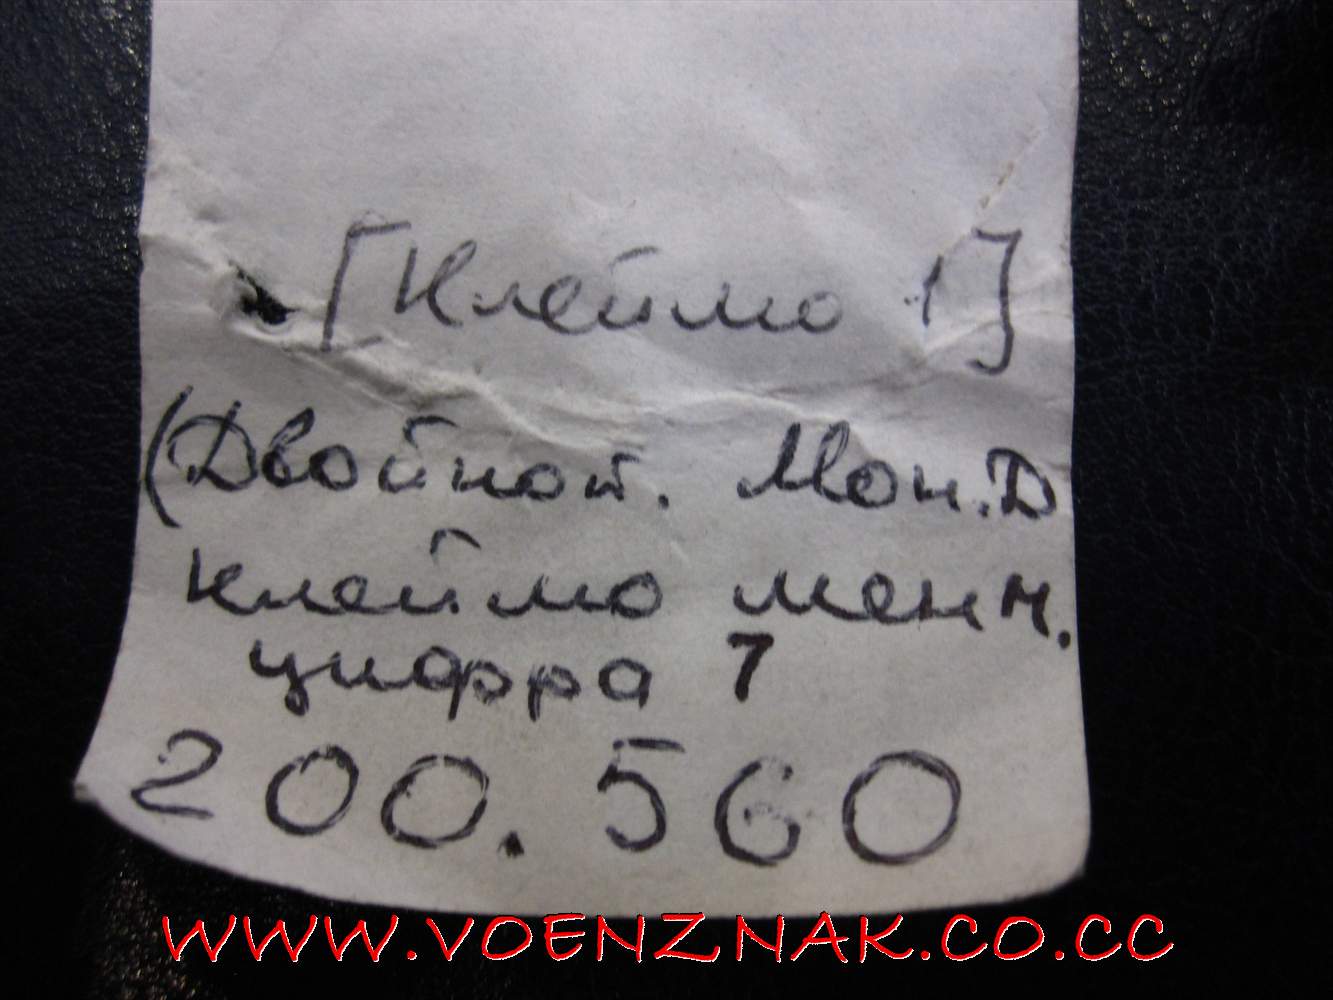 [Клеймо 1]
(Двойной. Мон.D
клеймо
цифра 7
200.560
WWW.VOENZNAK.CO.CC